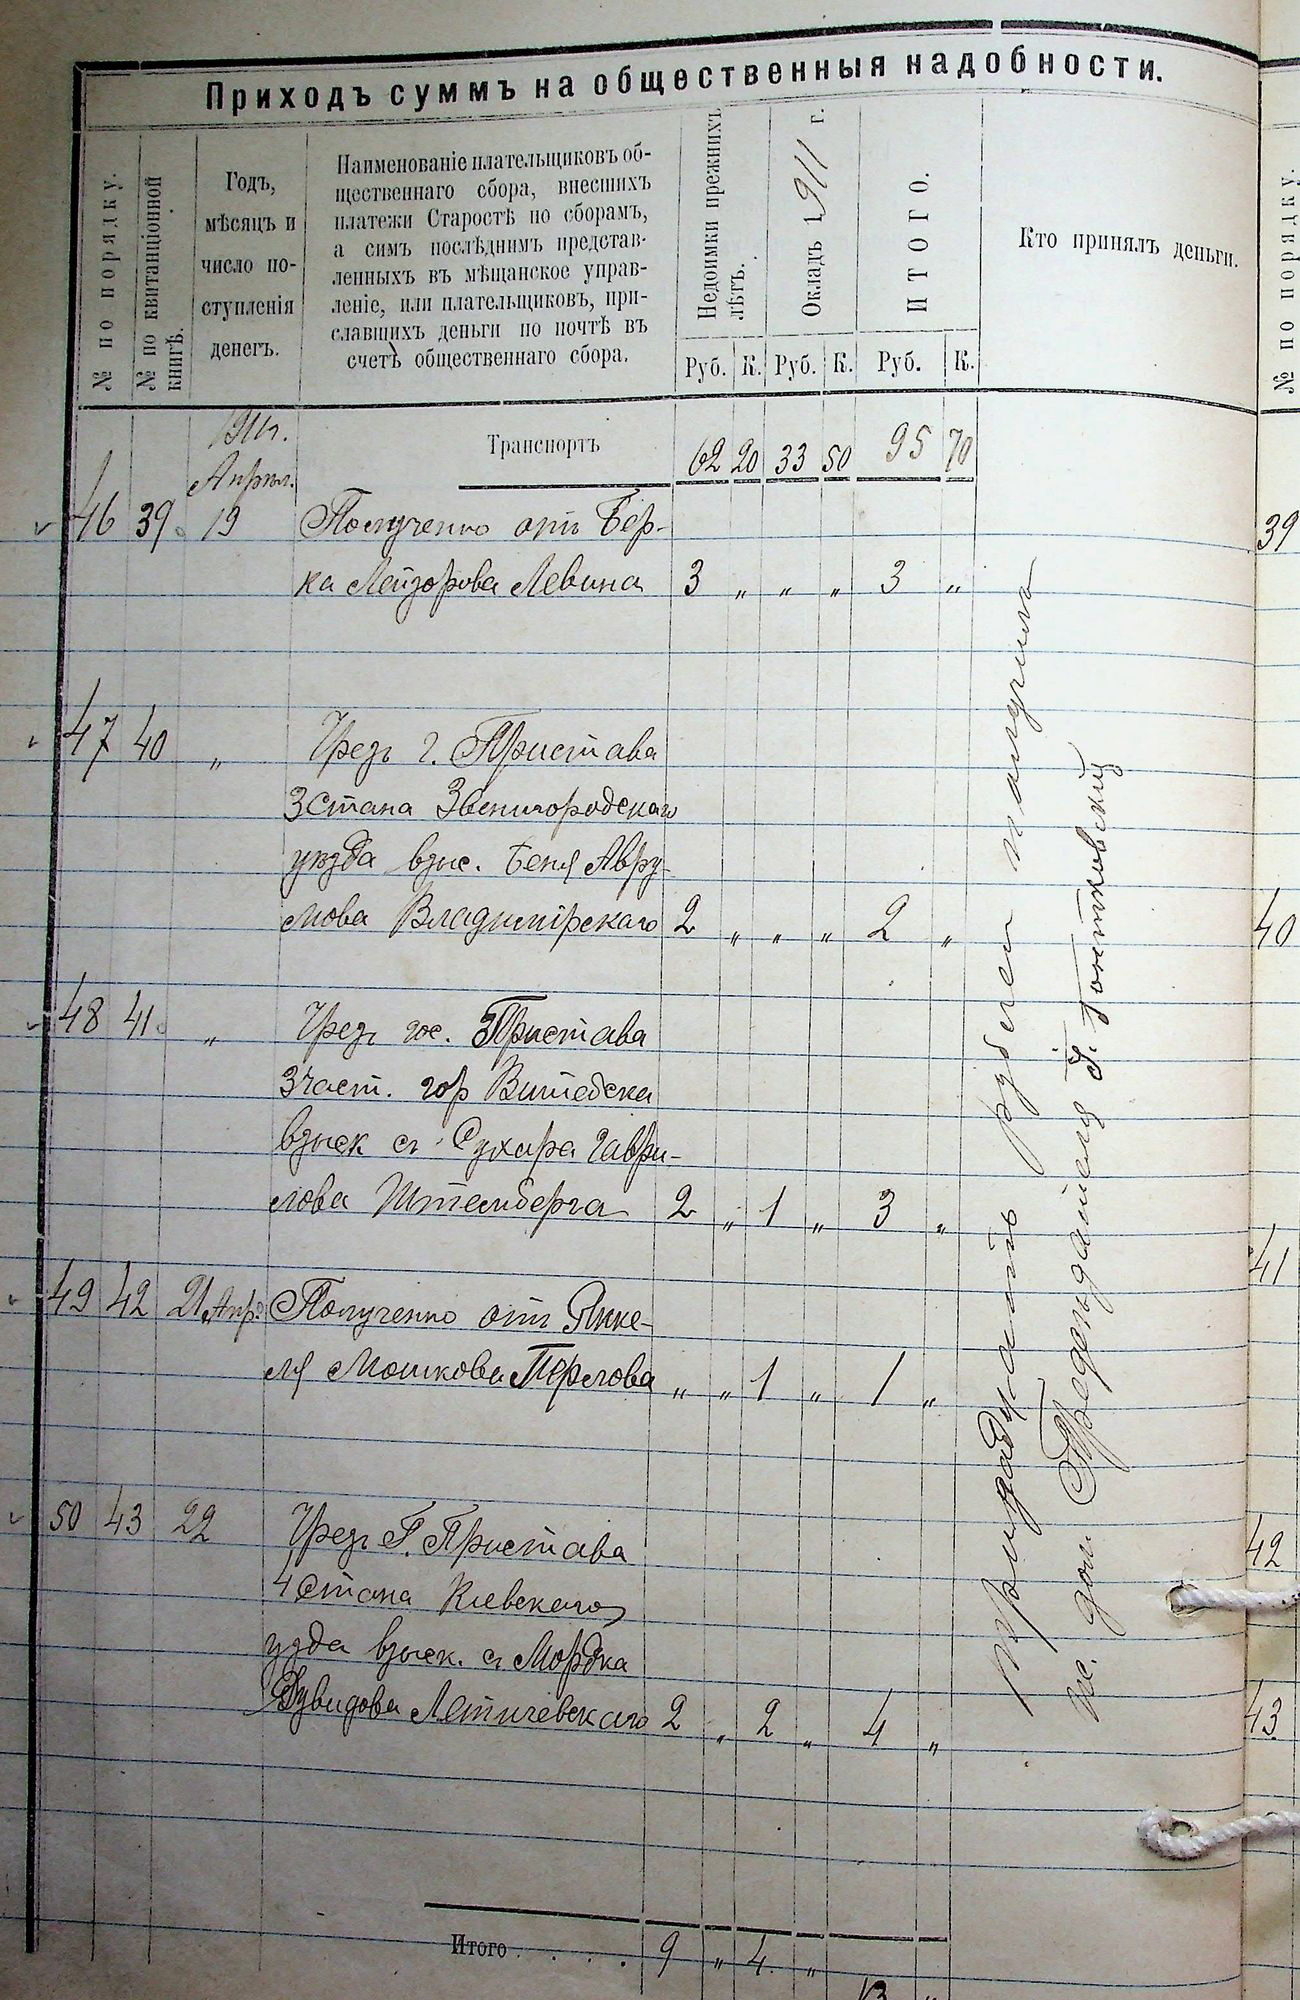 Приходъ суммъ на общественныя надобности.
№ по порядку.
№ по квитанціонной
книгѣ.
Годъ,
мѣсяцъ и
число по-
ступленія
денегъ.
Наименованіе плательщиковъ об-
щественнаго сбора, внесшихъ
платежи Старостѣ по сборамъ,
а симъ послѣднимъ представ-
ленныхъ въ мѣщанское управ-
леніе, или плательщиковъ, при-
славшихъ деньги по почтѣ въ
счетъ общественнаго сбора.
Недоимки прежнихъ
лѣтъ.
Окладъ 1911 г.
ИТОГО.
Кто принялъ деньги.
Руб. К. Руб. К. Руб. К.
1911г. Транспортъ 62 20 33 50 95 70
Апрѣл.
46 39 19 Полученно отъ Бер-
ка Лейзорова Левина 3 „ „ „ 3 „
47 40 „ Чрезъ г. Пристава
3 Стана Звенигородскаго
уѣзда взыс. Беня Авру-
мова Владимірскаго 2 „ „ „ 2 „
48 41 „ Чрезъ гос. Пристава
3 част. гор Витебска
взыск съ Сухара Гаври-
лова Штемберга 2 „ 1 „ 3 „
49 42 21 Апр. Полученно отъ Янке-
ля Мошкова Перлова „ „ 1 „ 1 „
50 43 22 Чрезъ Г. Пристава
4 Стана Кіевскаго
уѣзда взыск. съ Мордка
Дувидова Летичевскаго 2 „ 2 „ 4 „
Итого . . . . 9 „ 4 „ 13 „
Тринадцать рублей получилъ
и. дол. Предсѣдателя
№ по порядку.
39
40
41
42
43